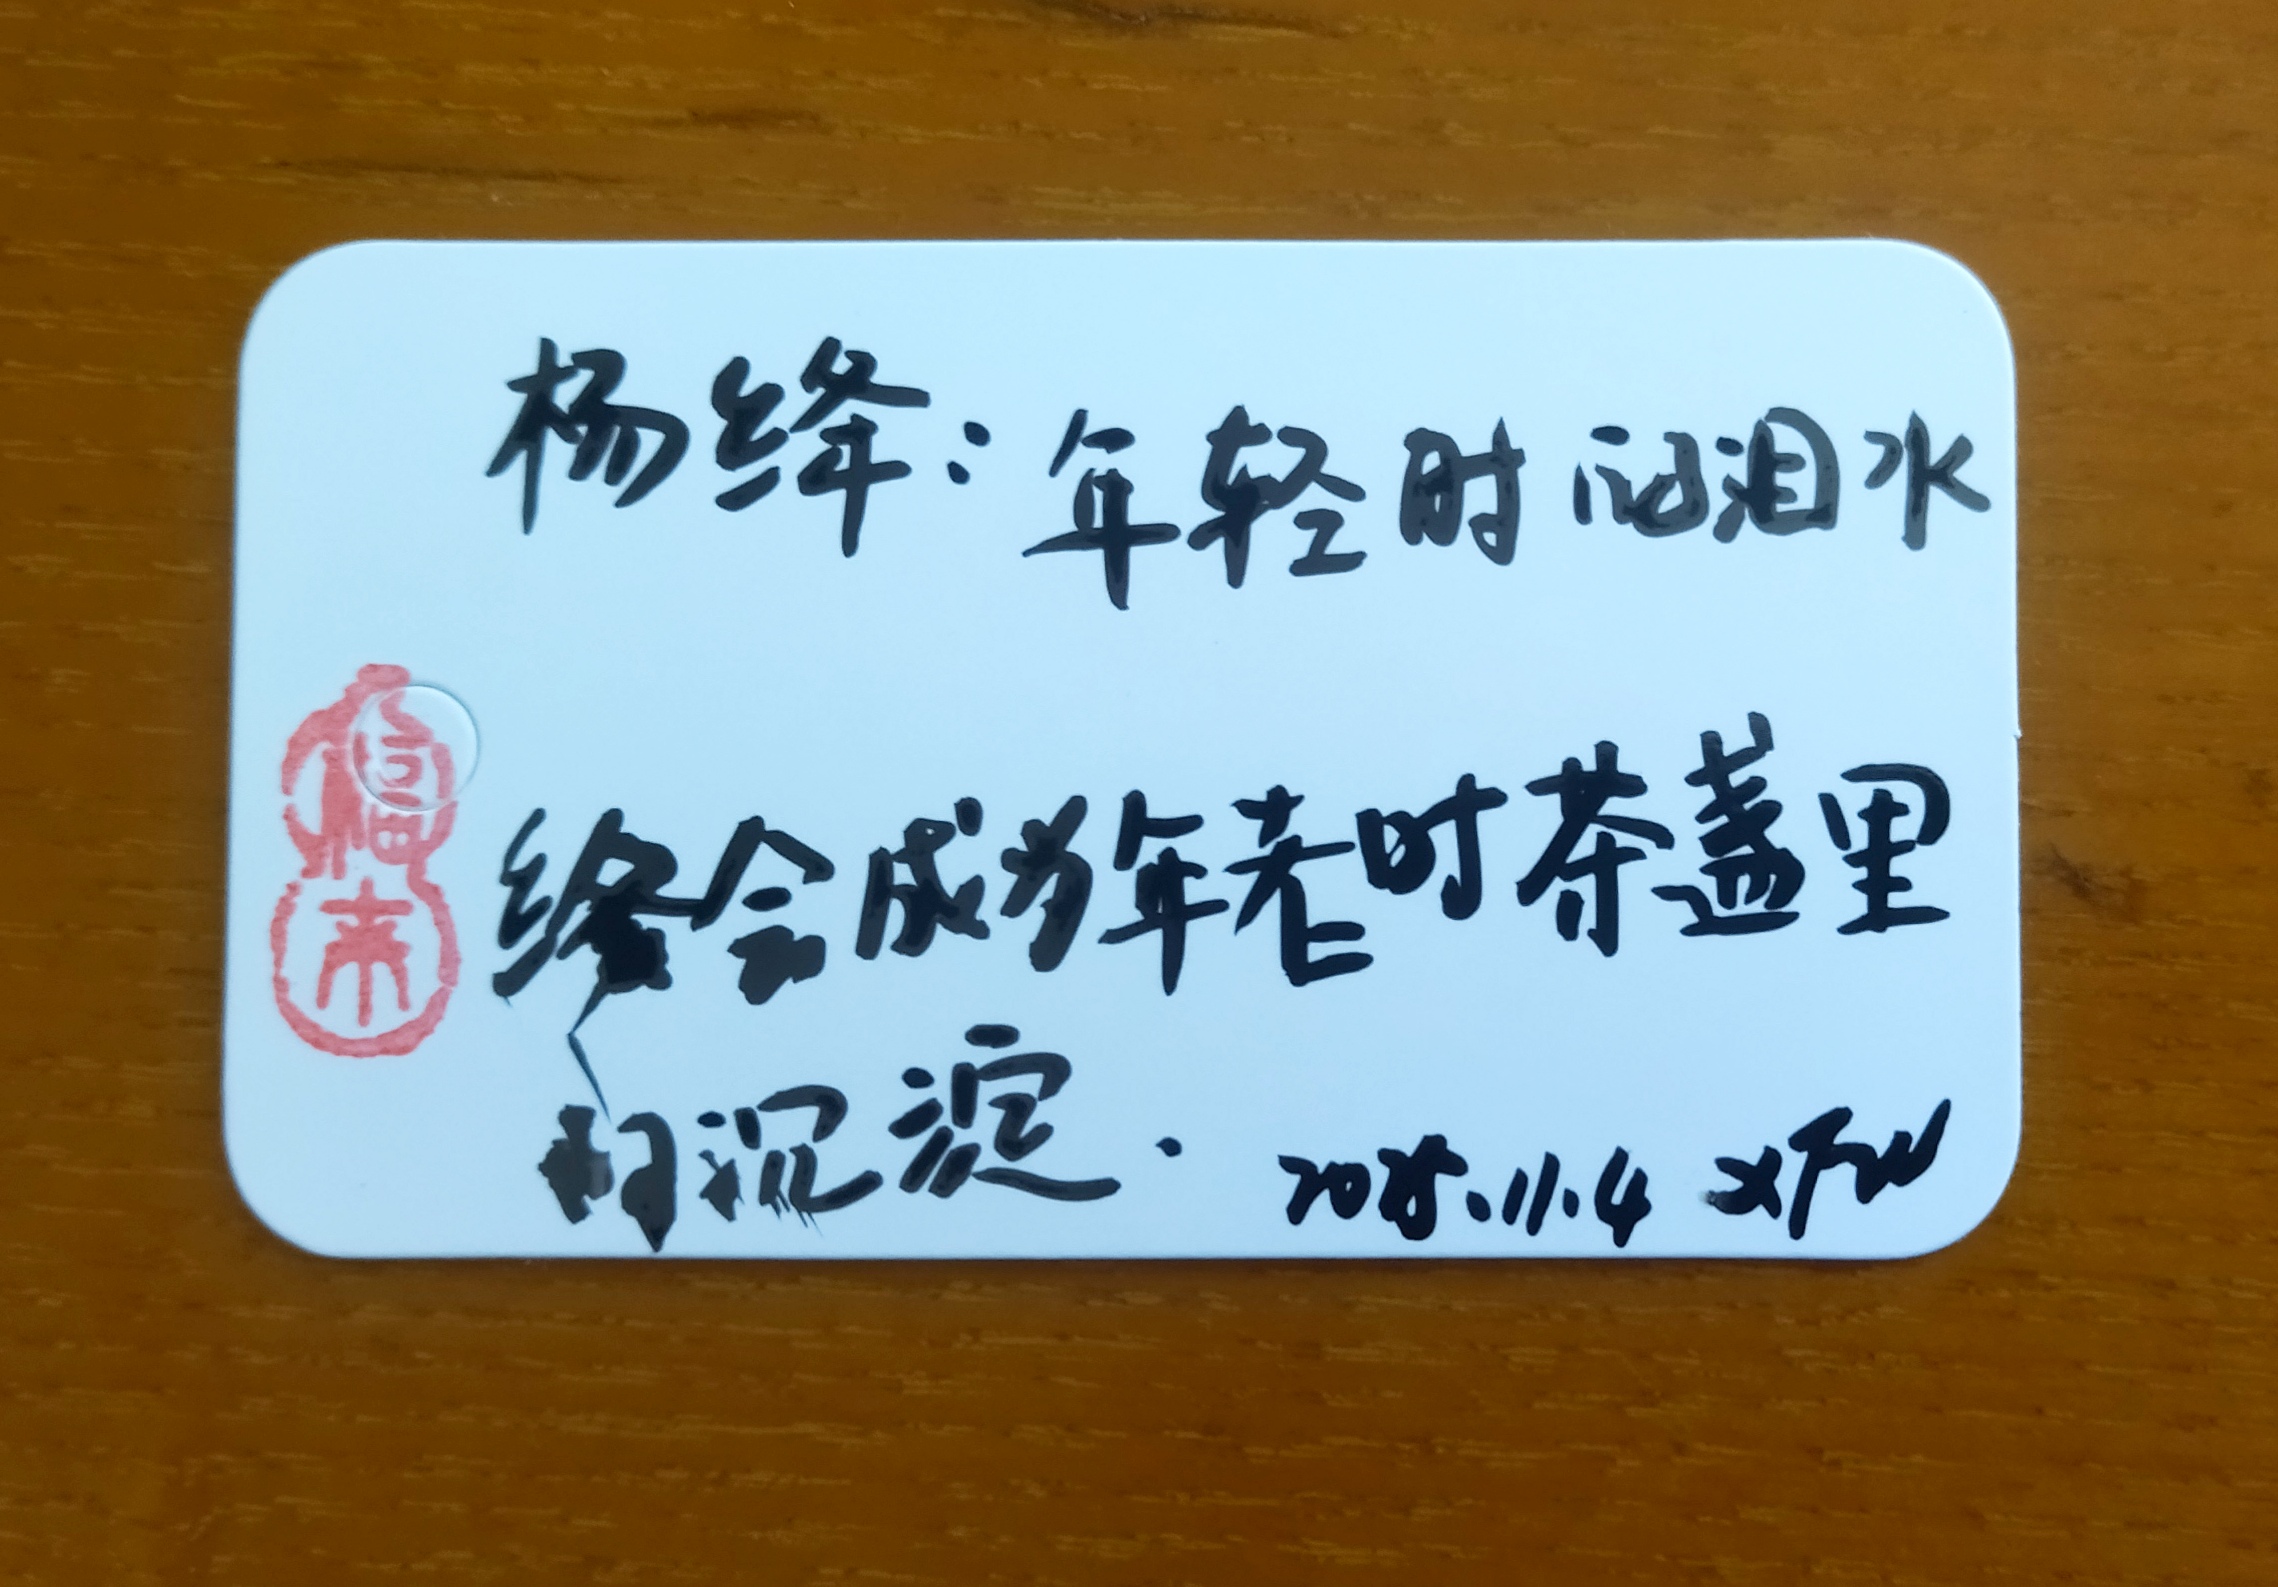 杨绛：年轻时的泪水
终会成为年老时茶盏里
的沉淀.
2025.11.4
福来